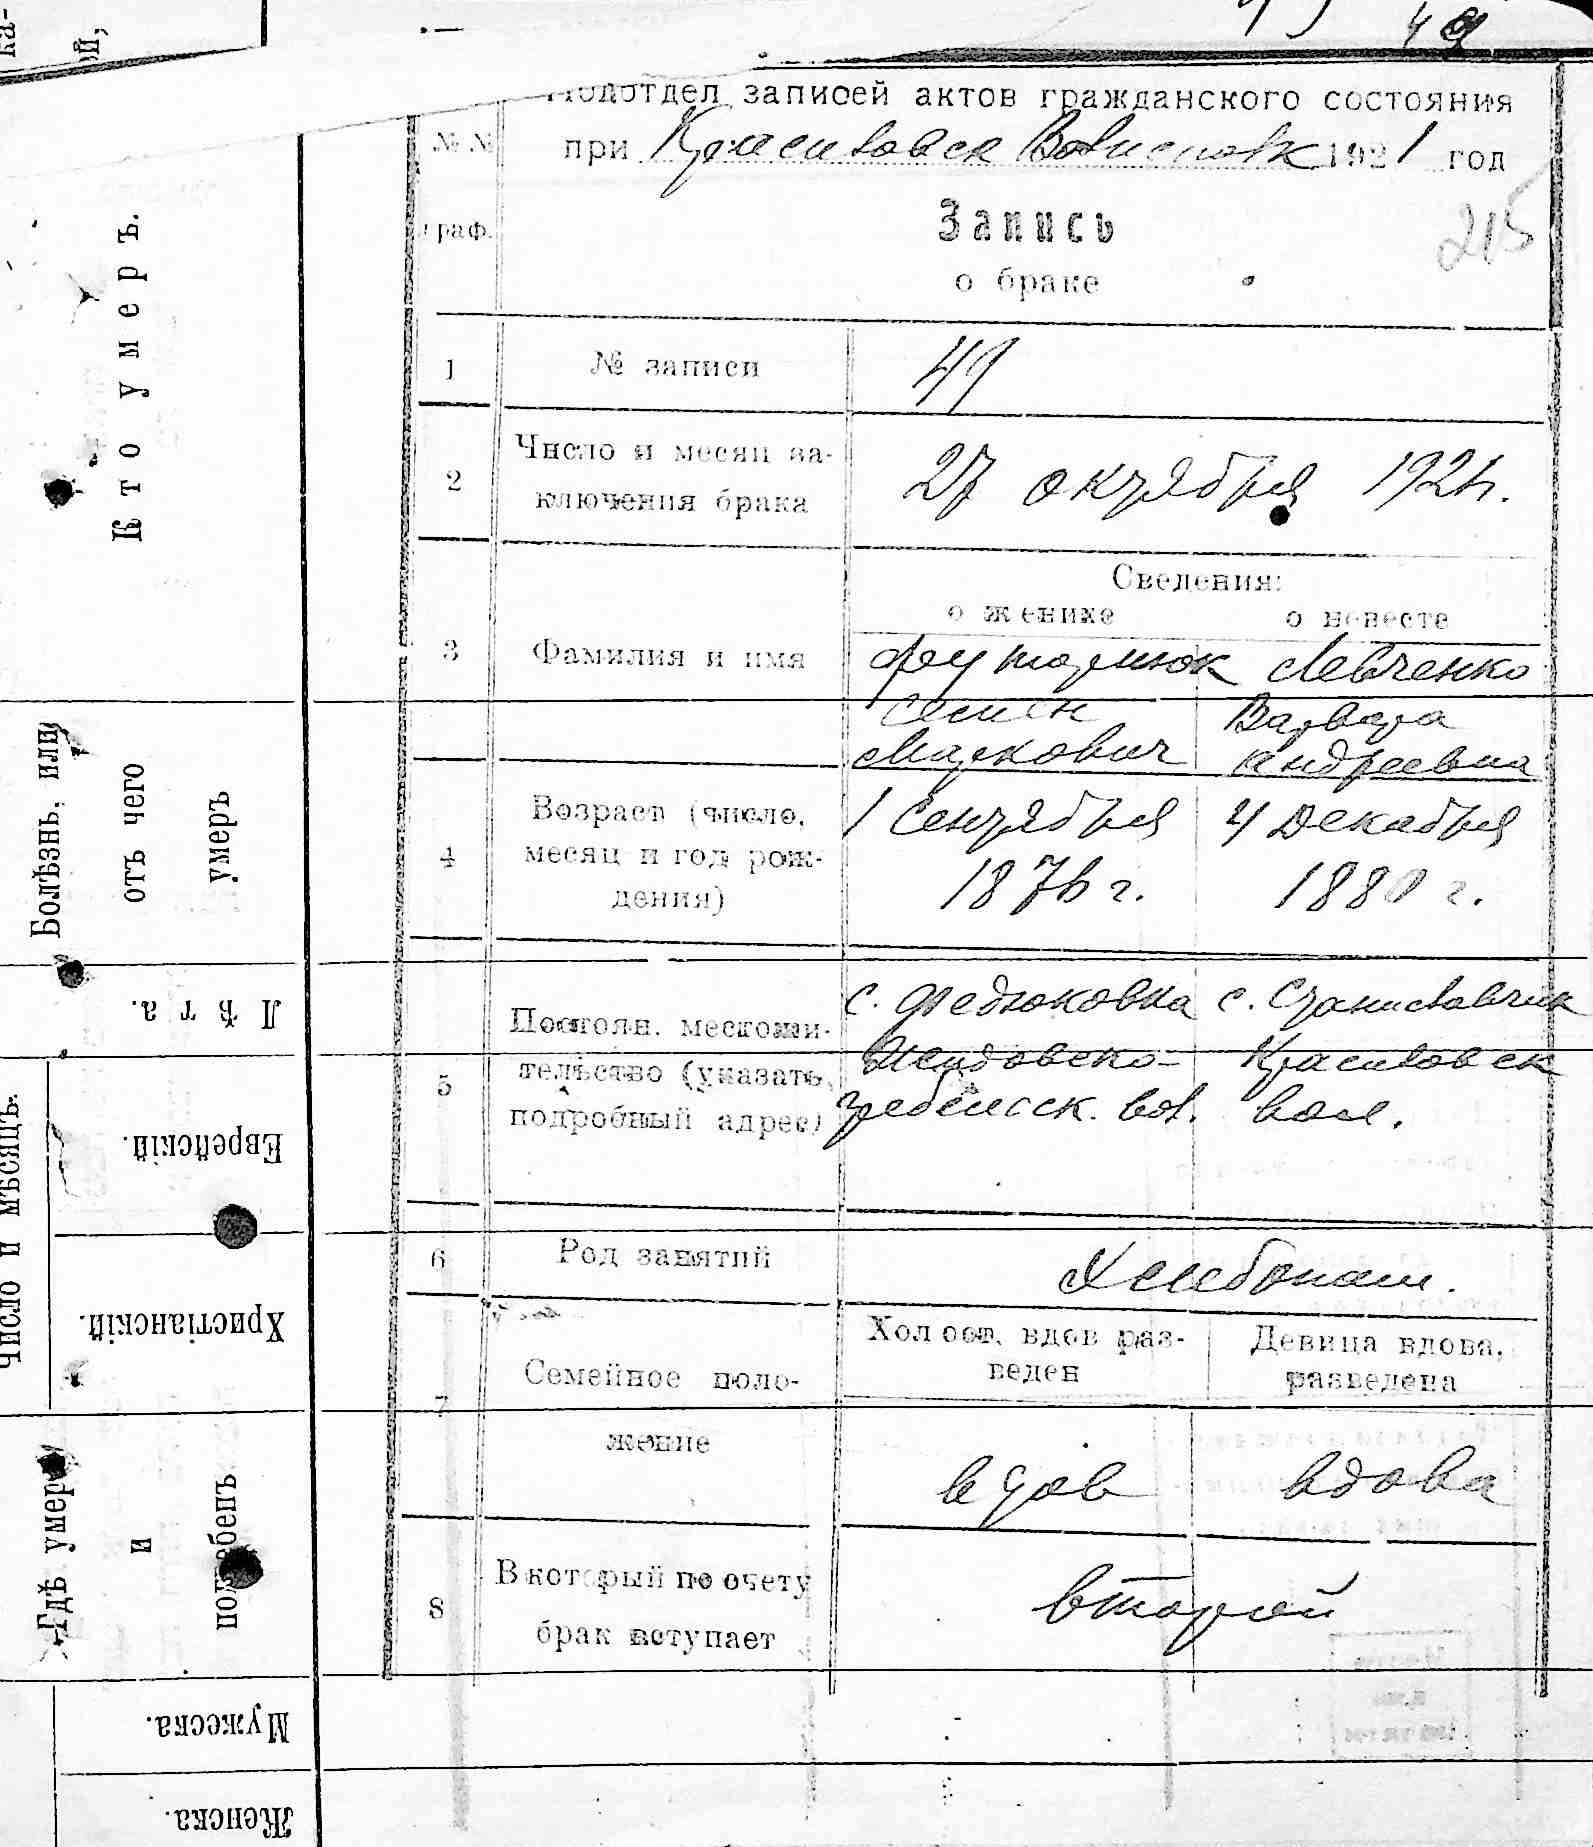 ка-
ой,
49
Подотдел записей актов гражданского состояния
№№
при Красиловск Волисполк 1921 год
граф.
Запись
215
о браке
1
№ записи
49
2
Число и месяц за-
ключения брака
27 октября 1921г.
Сведения:
о женихе
о невесте
3
Фамилия и имя
Левченко
Семен
Варвара
Маркович
Андреевна
4
Возраст (число,
месяц и год рож-
дения)
1 Сентября
4 Декабря
1876 г.
1880 г.
5
Постоян. местожи-
тельство (указать,
подробный адрес)
с. Федюковка
с. Станиславчик
Красиловск
гребельск. вол.
вол.
6
Род занятий
Хлебопаш.
7
Семейное поло-
жение
Холост, вдов раз-
веден
Девица вдова,
разведена
вдов
вдова
8
В который по счету
брак вступает
второй
Кто умеръ.
Болѣзнь, или
отъ чего
умеръ
Лѣта.
Число и мѣсяцъ.
Еврейскій.
Христіанскій.
Гдѣ умеръ
и
погребенъ
Мужеска.
Женска.